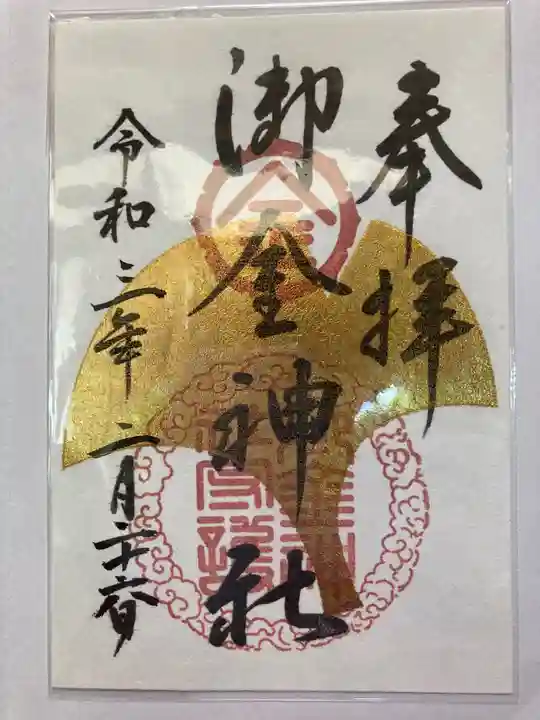 奉拝
御金神社
令和三年二月二十六日